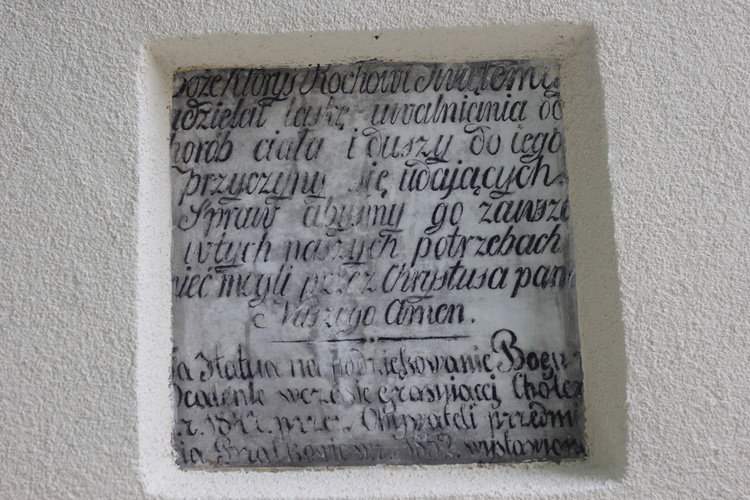 Boże Któryś Rochowi Swiętemu
udzielał łaskę uwalniania do
horób ciała i duszy do iego
przyczyny się udających.
Spraw abyśmy go zawsze
wtych naszych potrzebach
mieć mogli przez Chrystusa pana
Naszego Amen.
Statua na podziękowanie Bogu
Ocalenie wczesie grasującej Choler
r. przez Obywateli przedmi
wystawiona